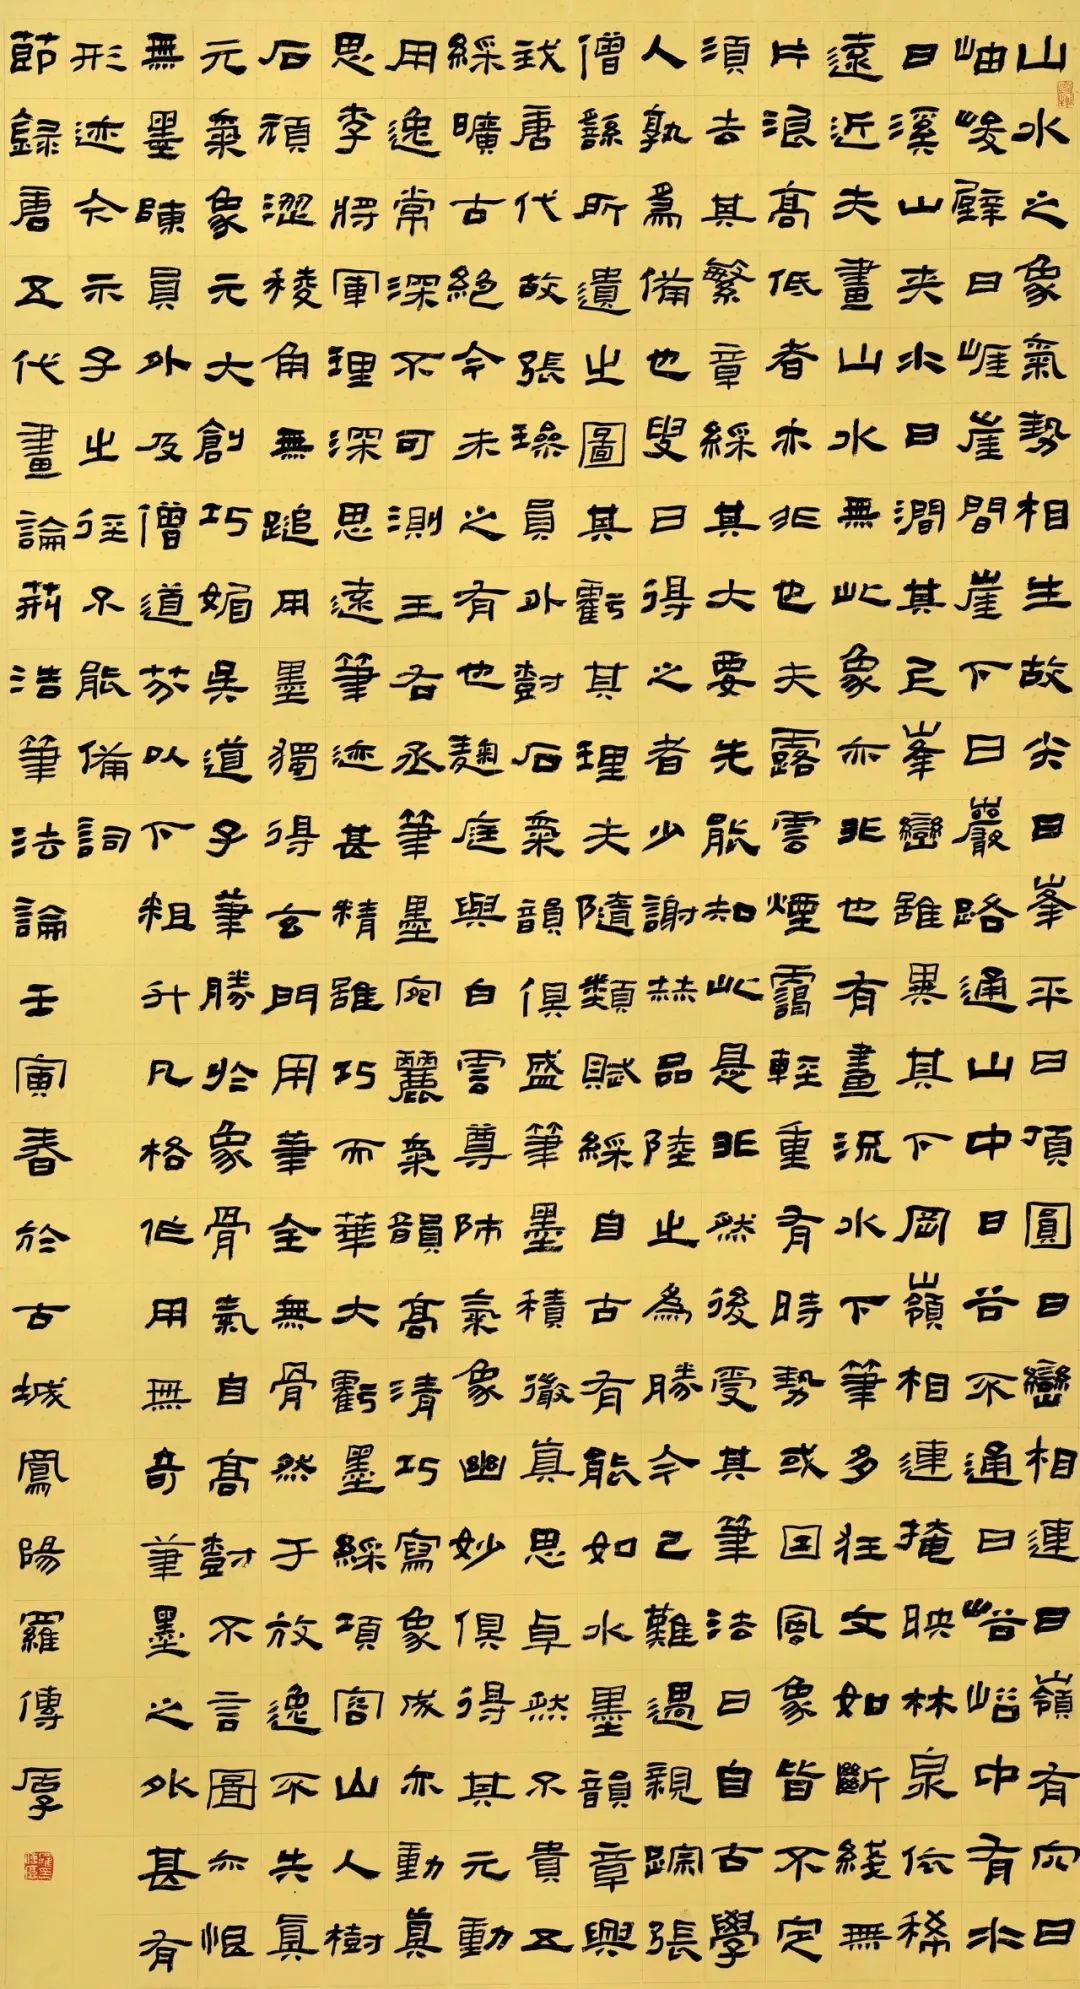 山水之象氣勢相生故尖曰峯平曰頂圓曰巒相連曰嶺有穴曰
岫峻壁曰崕崖間崖下曰巖路通山中曰谷不通曰峪峪中有水
曰溪山夾水曰澗其上峯巒雖異其下岡嶺相連掩映林泉依稀
遠近夫畫山水無此象亦非也有畫流水下筆多狂文如斷綫無
片浪高低者亦非也夫露雲煙靄輕重有時勢或因風象皆不定
須去其繁章綵其大要先能知此是非然後受其筆法曰自古學
人孰爲備也叟曰得之者少謝赫品陸止為勝今已難遇親蹤張
僧繇所遺之圖其虧其理夫隨類賦綵自古有能如水墨韻章興
我唐代故張璪員外樹石氣韻俱盛筆墨積微真思卓然不貴五
綵曠古絕今未之有也麴庭與白雲尊師氣象幽妙俱得其元動
用逸常深不可測王右丞筆墨宛麗氣韻高清巧寫象成亦動真
思李將軍理深思遠筆迹甚精雖巧而華大虧墨綵項容山人樹
石頑澀稜角無用墨獨得玄門用筆全無骨然于放逸不失真
元氣象元大創巧媚吳道子筆勝於象骨氣自高樹不言圖亦恨
無墨陳員外及僧道芬以下粗升凡格作用無奇筆墨之外甚有
形迹今示子之徑不能備詞
節錄唐五代畫論荊浩筆法論壬寅春於古城鳳陽羅傳厚